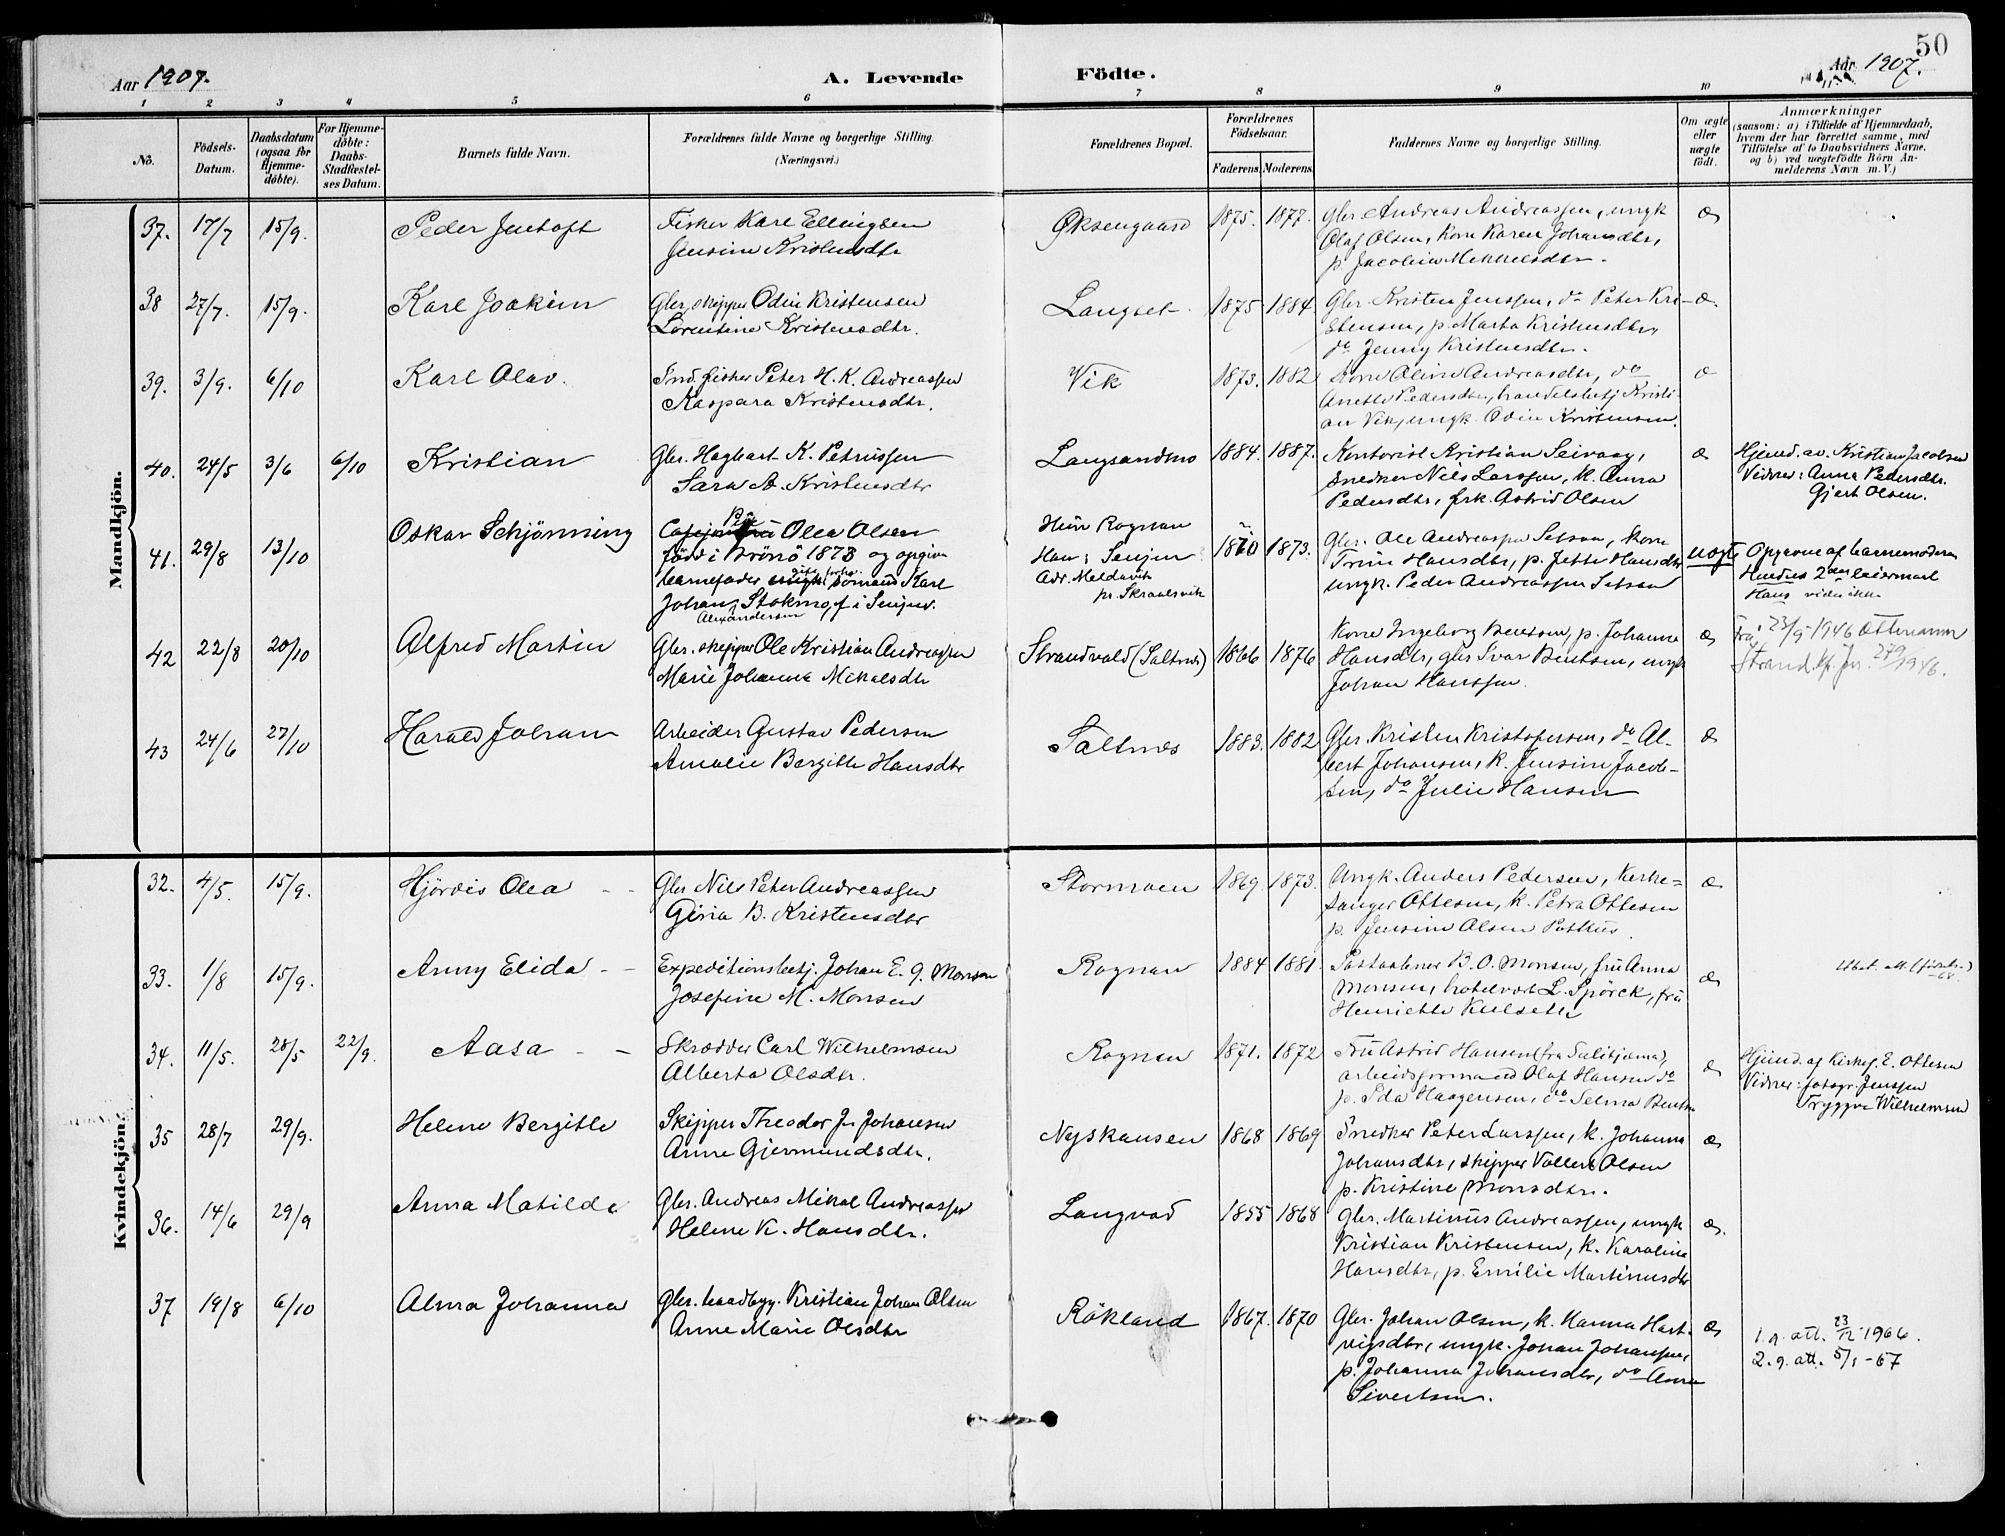 50
Aar 1907.
A. Levende
Födte.
Aar 1907.
1 2 3 4 5 6 7 8 9 10
No.
Födsels-
Datum.
Daabsdatum
(ogsaa for
Hjemme-
döbte).
For Hjemme-
döbte:
Daabs-
Stadfæstel-
ses Datum.
Barnets fulde Navn.
Forældrenes fulde Navne og borgerlige Stilling.
(Næringsvei.)
Forældrenes Bopæl.
Forældrenes
Födselsaar.
Faderens. Moderens.
Faddernes Navne og borgerlige Stilling.
Om ægte
eller
uægte
födt.
Anmærkninger
(saasom: a) i Tilfælde af Hjemmedaab,
hvem der har forrettet samme, med
Tilföielse af to Daabsvidners Navne,
og b) ved uægtefödte Börn An-
melderens Navn m. V.)
Mandkjön.
37. 17/7 15/9. Peder Jentoft
Fisker Karl Ellingsen
Jensine Kristensdtr
Øksengaard 1875. 1877.
Gbr. Andreas Andreassen, ungk
Olaf Olsen, kone Karen Johansdtr,
p. Jacobine Mikkelsdtr.
æ
38 27/7. 15/9. Karl Joakim
Gbr. skipper Odin Kristensen
Lorentine Kristensdtr.
Langset 1875 1884.
Gbr. Kristen Jenssen, do Peter Kri-
stensen, p. Marta Kristensdtr,
do Jenny Kristensdtr.
æ.
39. 3/9. 6/10 Karl Olav.
Ind. fisker Peter H. K. Andreassen
Kaspara Kristensdtr.
Vik 1873. 1882
Kone Oline Andreasdtr, do
Anette Pedersdtr, handelsbetj. Kristi-
an Vik, ungk. Odin Kristensen.
æ
40. 24/5 3/6 6/10 Kristian
Gbr. Hagbart K. Petrussen
Sara A. Kristensdtr
Langsandmo 1884. 1887.
Kontorist Kristian Seivaag,
snedker Nils Larssen, k. Anna
Pedersdtr, frk. Astrid Olsen
æ
Hjemd. av. Kristian Jacobsen
Vidner: Anna Pedersdtr.
Gjert Olsen.
41. 29/8 13/10 Oskar Schjönning
Pike Olea Olsen
född i Brönö 1873 og opgiven
barnefader ungk. sömand Karl
gift forhv.
Johan Stokmo, f. i Senjen.
Alexandersen
Hun Rognan
Han: Senjen
Adr. Meldavik
pr. Skraalsvik
1870 1873.
Gbr. Ole Andreassen Setsaa, kone
Trine Hansdtr, p. Jette Hansdtr
ungk. Peder Andreassen Setsaa
uægte
Opgivne af barnemoderen
Hendes 2det leiermaal
Hans vides ikke
42 22/8 20/10 Alfred Martin
Gbr. skipper Ole Kristian Andreassen
Marie Johanna Mikalsdtr
Strandvold (Saltnes) 1866 1876
Kone Ingeborg Bentsen, p. Johanna
Hansdtr, gbr Ivar Bentsen, ungk
Johan Hanssen.
æ
Fra 23/5 1946 etternavn
Strand, kf. Jnr. 279/1946.
43 24/6 27/10 Harald Johan
Arbeider Gustav Pedersen
Amalie Bergitte Hansdtr
Saltnes 1883. 1882
Gbr. Kristen Kristofersen, do Al-
bert Johansen, k. Jensine Jacob-
sen, do Julie Hansen
æ
Kvindekjön.
32. 4/5. 15/9. Hjördis Olea
Gbr Nils Peter Andreassen
Gina B. Kristensdtr
Stormoen 1869. 1873.
Ungk. Anders Pedersen, Kirke-
sanger Ottesen, k. Petra Ottesen
p. Jensine Olsen
æ
33. 1/8 15/9. Anny Elida
Expeditionsbetj. Johan E. G. Monsen
Josefine M. Monsen
Rognan 1884 1881.
Postaabner B. O. Monsen, fru Anna
Monsen, hotelvært L. Spörck, fru
Henriette Kulseter
æ
Utst. att. (födsels-)
-68.
34. 11/5. 28/5 22/9. Aasa
Skrædder Carl Wilhelmsen
Alberta Olsdtr.
Rognan 1871. 1872
Fru Astrid Hansen (fra Sulitjelma),
arbeidsformand Olaf Hansen do
p. Ida Haagensen, do Selma Bentsen
æ
Hjemd. af Kirkes. E. Ottesen
Vidner: fotogr. Jenssen
Tryggve Wilhelmsen
35 28/7 29/9. Helene Bergitte
Skipper Theodor J. Johansen
Anne Gjermundsdtr.
Nyskansen 1868 1869
Snedker Peter Larssen, k. Johanna
Johansdtr, skipper Vollert Olsen
p. Kristine Monsdtr.
æ
36. 14/6 29/9 Anna Matilda
Gbr. Andreas Mikal Andreassen
Helene K. Hansdtr.
Langvad 1855 1868
Gbr. Martinus Andreassen, ungk
Kristian Kristensen, k. Karoline
Hansdtr, p. Emilie Martinusdtr
æ.
37 19/8 6/10 Alma Johanna
Gbr. baadbygg. Kristian Johan Olsen
Anne Marie Olsdtr
Rökland 1867. 1870
Gbr. Johan Olsen, k. Hanna Hart-
vigsdtr, ungk. Johan Johansen,
p. Johanna Johansdtr, do Anna
Sivertsen.
æ
1. g. att. 23/12 1966.
2. g. att. 5/1-67